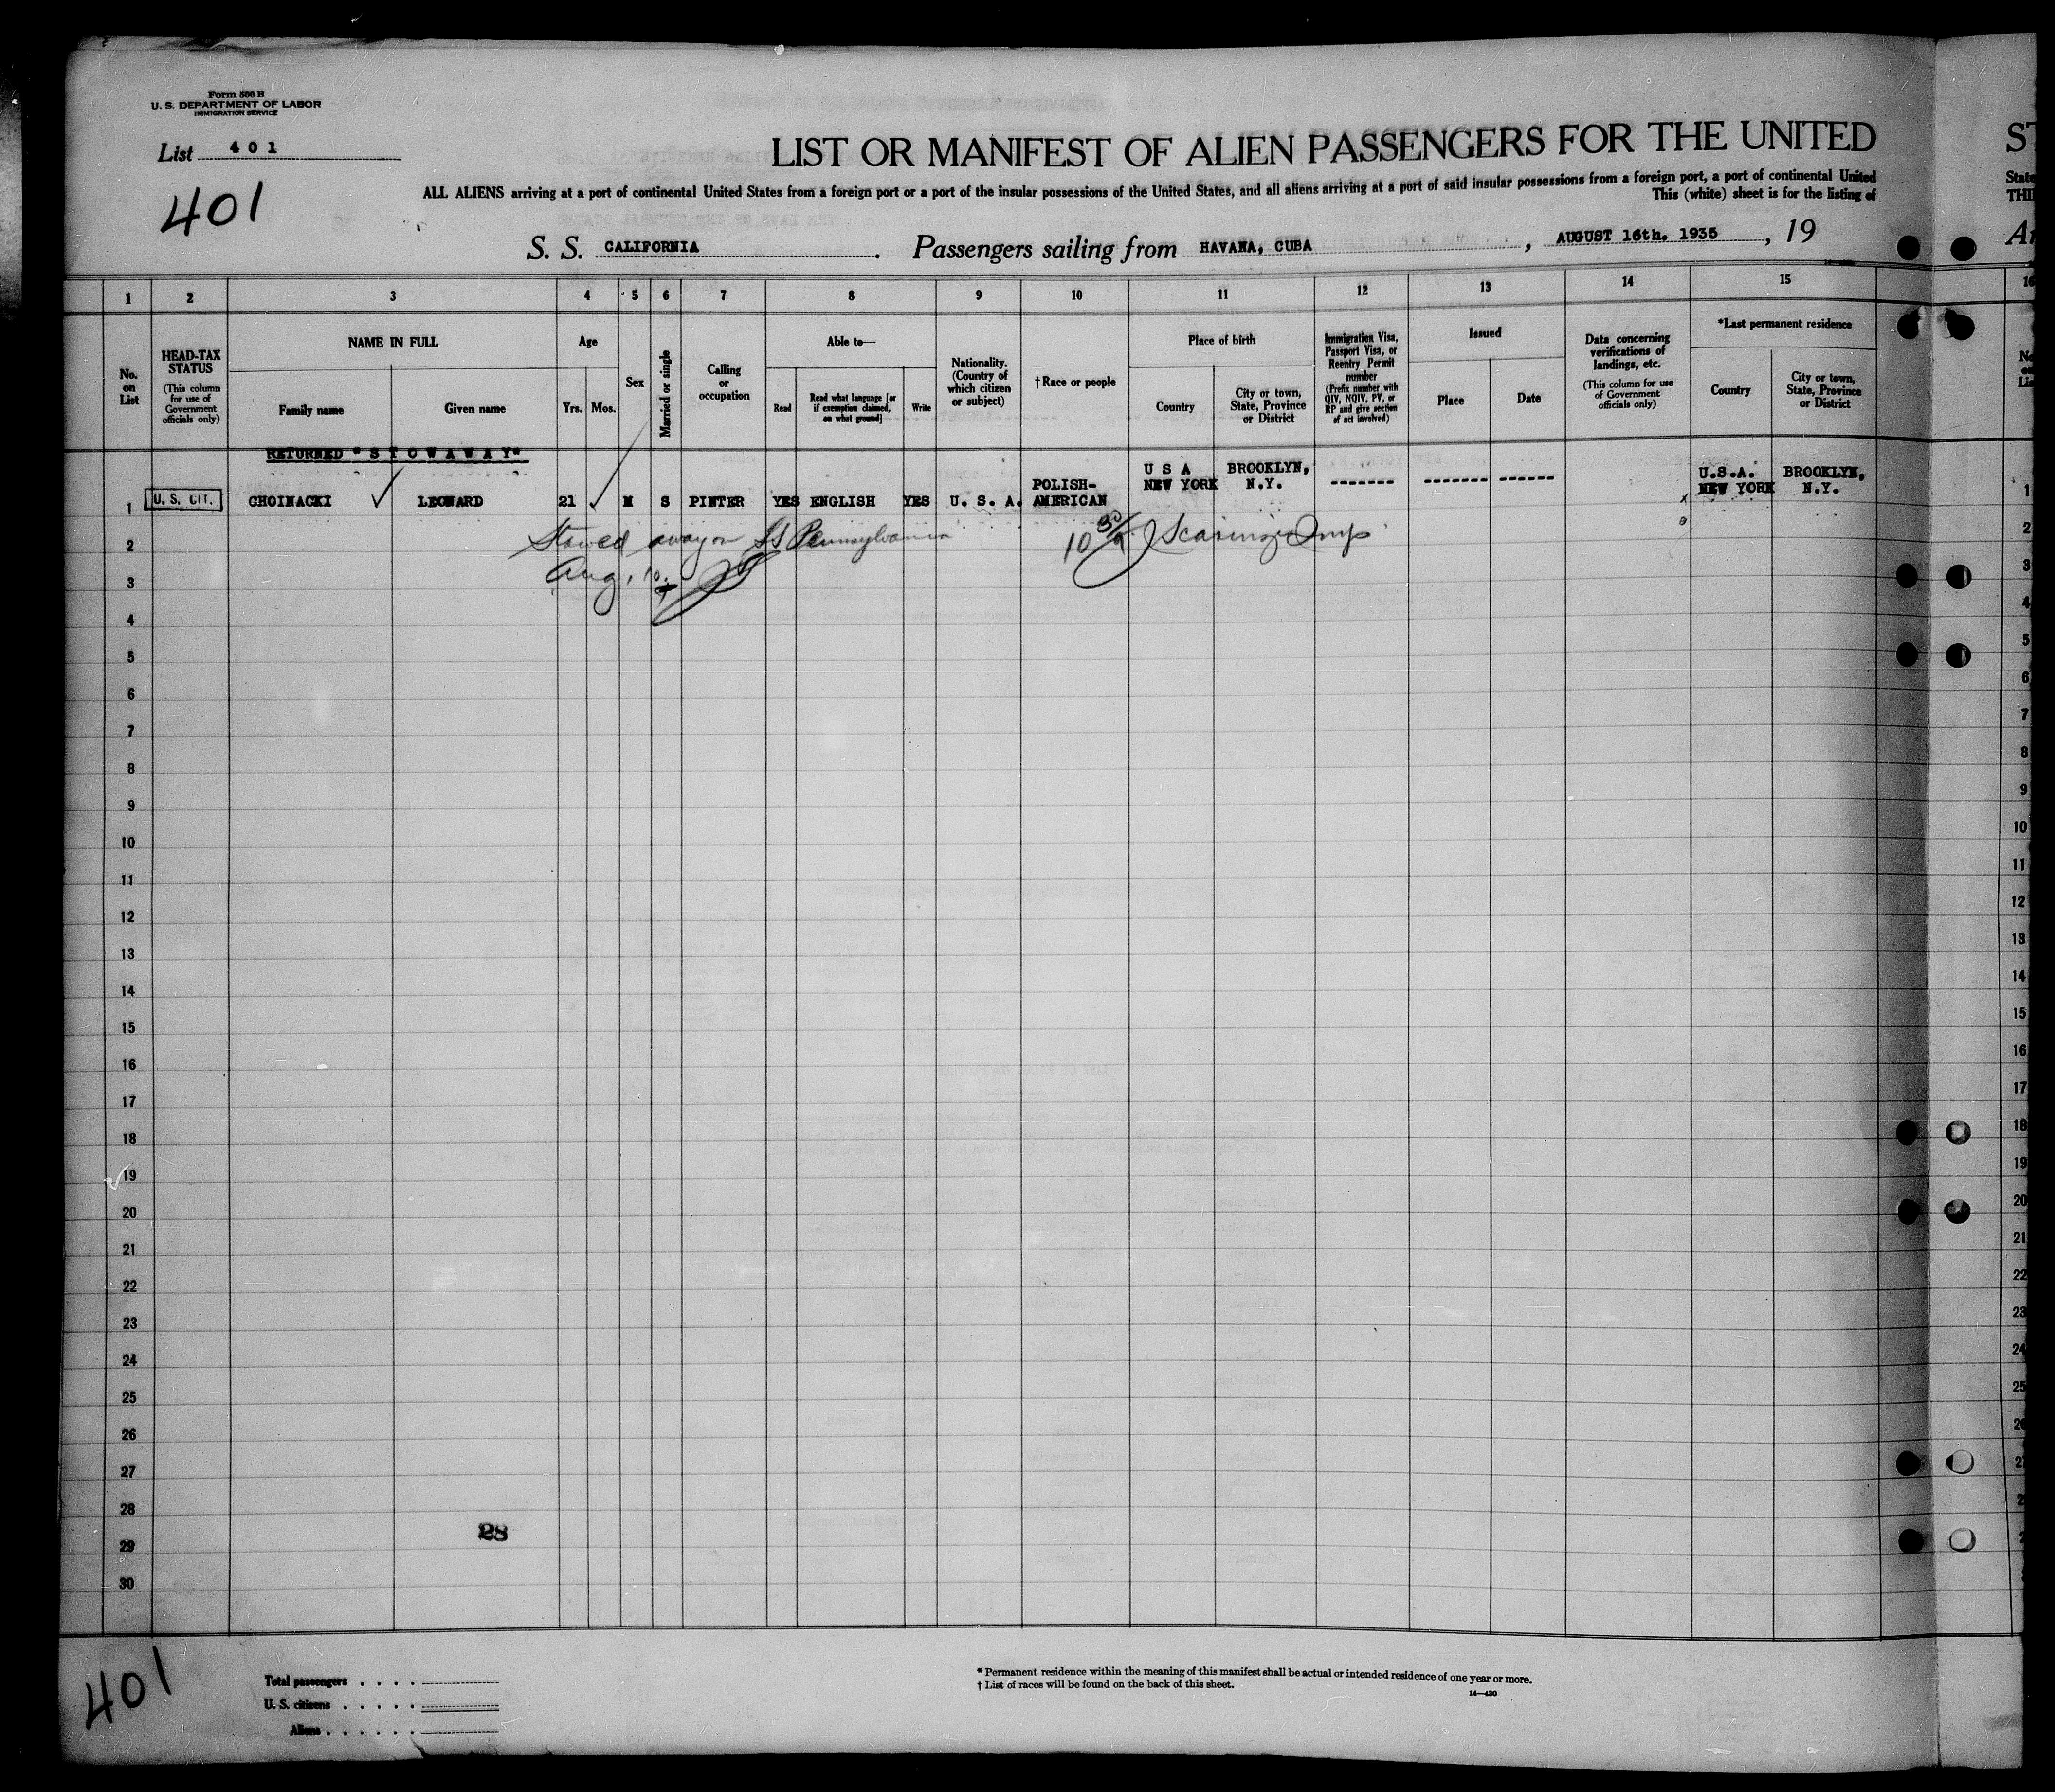 Form 500 B
U. S. DEPARTMENT OF LABOR
IMMIGRATION SERVICE
List 401
401
LIST OR MANIFEST OF ALIEN PASSENGERS FOR THE UNITED
ALL ALIENS arriving at a port of continental United States from a foreign port or a port of the insular possessions of the United States, and all aliens arriving at a port of said insular possessions from a foreign port, a port of continental United
This (white) sheet is for the listing of
S. S. CALIFORNIA. Passengers sailing from HAVANA, CUBA, AUGUST 16th. 1935, 19
1 2 3 4 5 6 7 8 9 10 11 12 13 14 15 16
No. on List
HEAD-TAX STATUS
(This column for use of Government officials only)
NAME IN FULL
Family name
Given name
Age
Yrs. Mos.
Sex
Married or single
Calling or occupation
Able to—
Read
Read what language [or if exemption claimed, on what ground]
Write
Nationality. (Country of which citizen or subject)
† Race or people
Place of birth
Country
City or town, State, Province or District
Immigration Visa, Passport Visa, or Reentry Permit number
(Prefix number with QIV, NQIV, PV, or RP and give section of act involved)
Issued
Place
Date
Data concerning verifications of landings, etc.
(This column for use of Government officials only)
*Last permanent residence
Country
City or town, State, Province or District
RETURNED "STOWAWAY"
1 U. S. CIT. CHOINACKI LEONARD 21 M S PINTER YES ENGLISH YES U. S. A. POLISH-AMERICAN U S A NEW YORK BROOKLYN, N.Y. ------- ------- ------ U.S.A. NEW YORK BROOKLYN, N.Y. 1
2 Stowed away on SS Pennsylvania 2
3 Aug. 10 3
4 4
5 5
6 6
7 7
8 8
9 9
10 10
11 11
12 12
13 13
14 14
15 15
16 16
17 17
18 18
19 19
20 20
21 21
22 22
23 23
24 24
25 25
26 26
27
28
28
29
30
401
Total passengers . . . .
U. S. citizens . . . . .
Aliens . . . . . .
* Permanent residence within the meaning of this manifest shall be actual or intended residence of one year or more.
† List of races will be found on the back of this sheet.
14—430